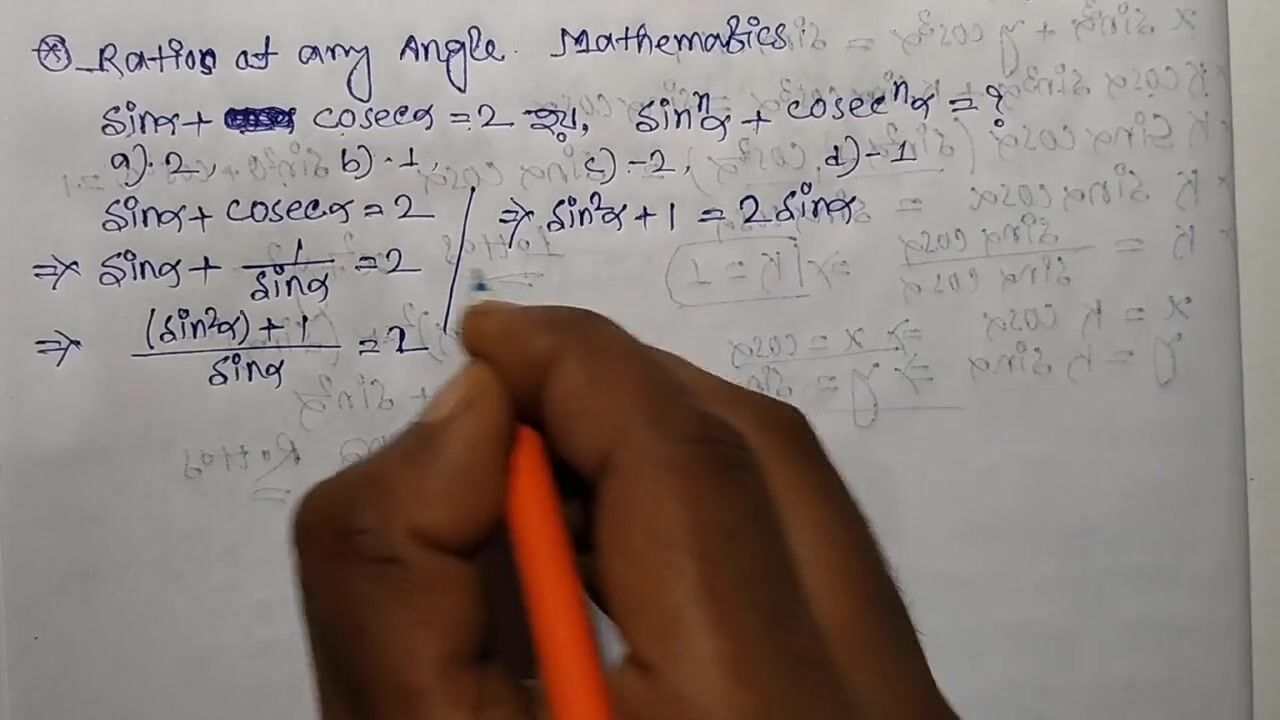 ⊛ Ratios at any Angle. Mathematics
sinα + cosecα = 2 হয়, sinⁿα + cosecⁿα = ?
a) · 2, b) · 1, c) -2, d) -1
sinα + cosecα = 2
⇒ sinα + 1/sinα = 2
⇒ (sin²α) + 1/sinα = 2
⇒ sin²α + 1 = 2 sinα